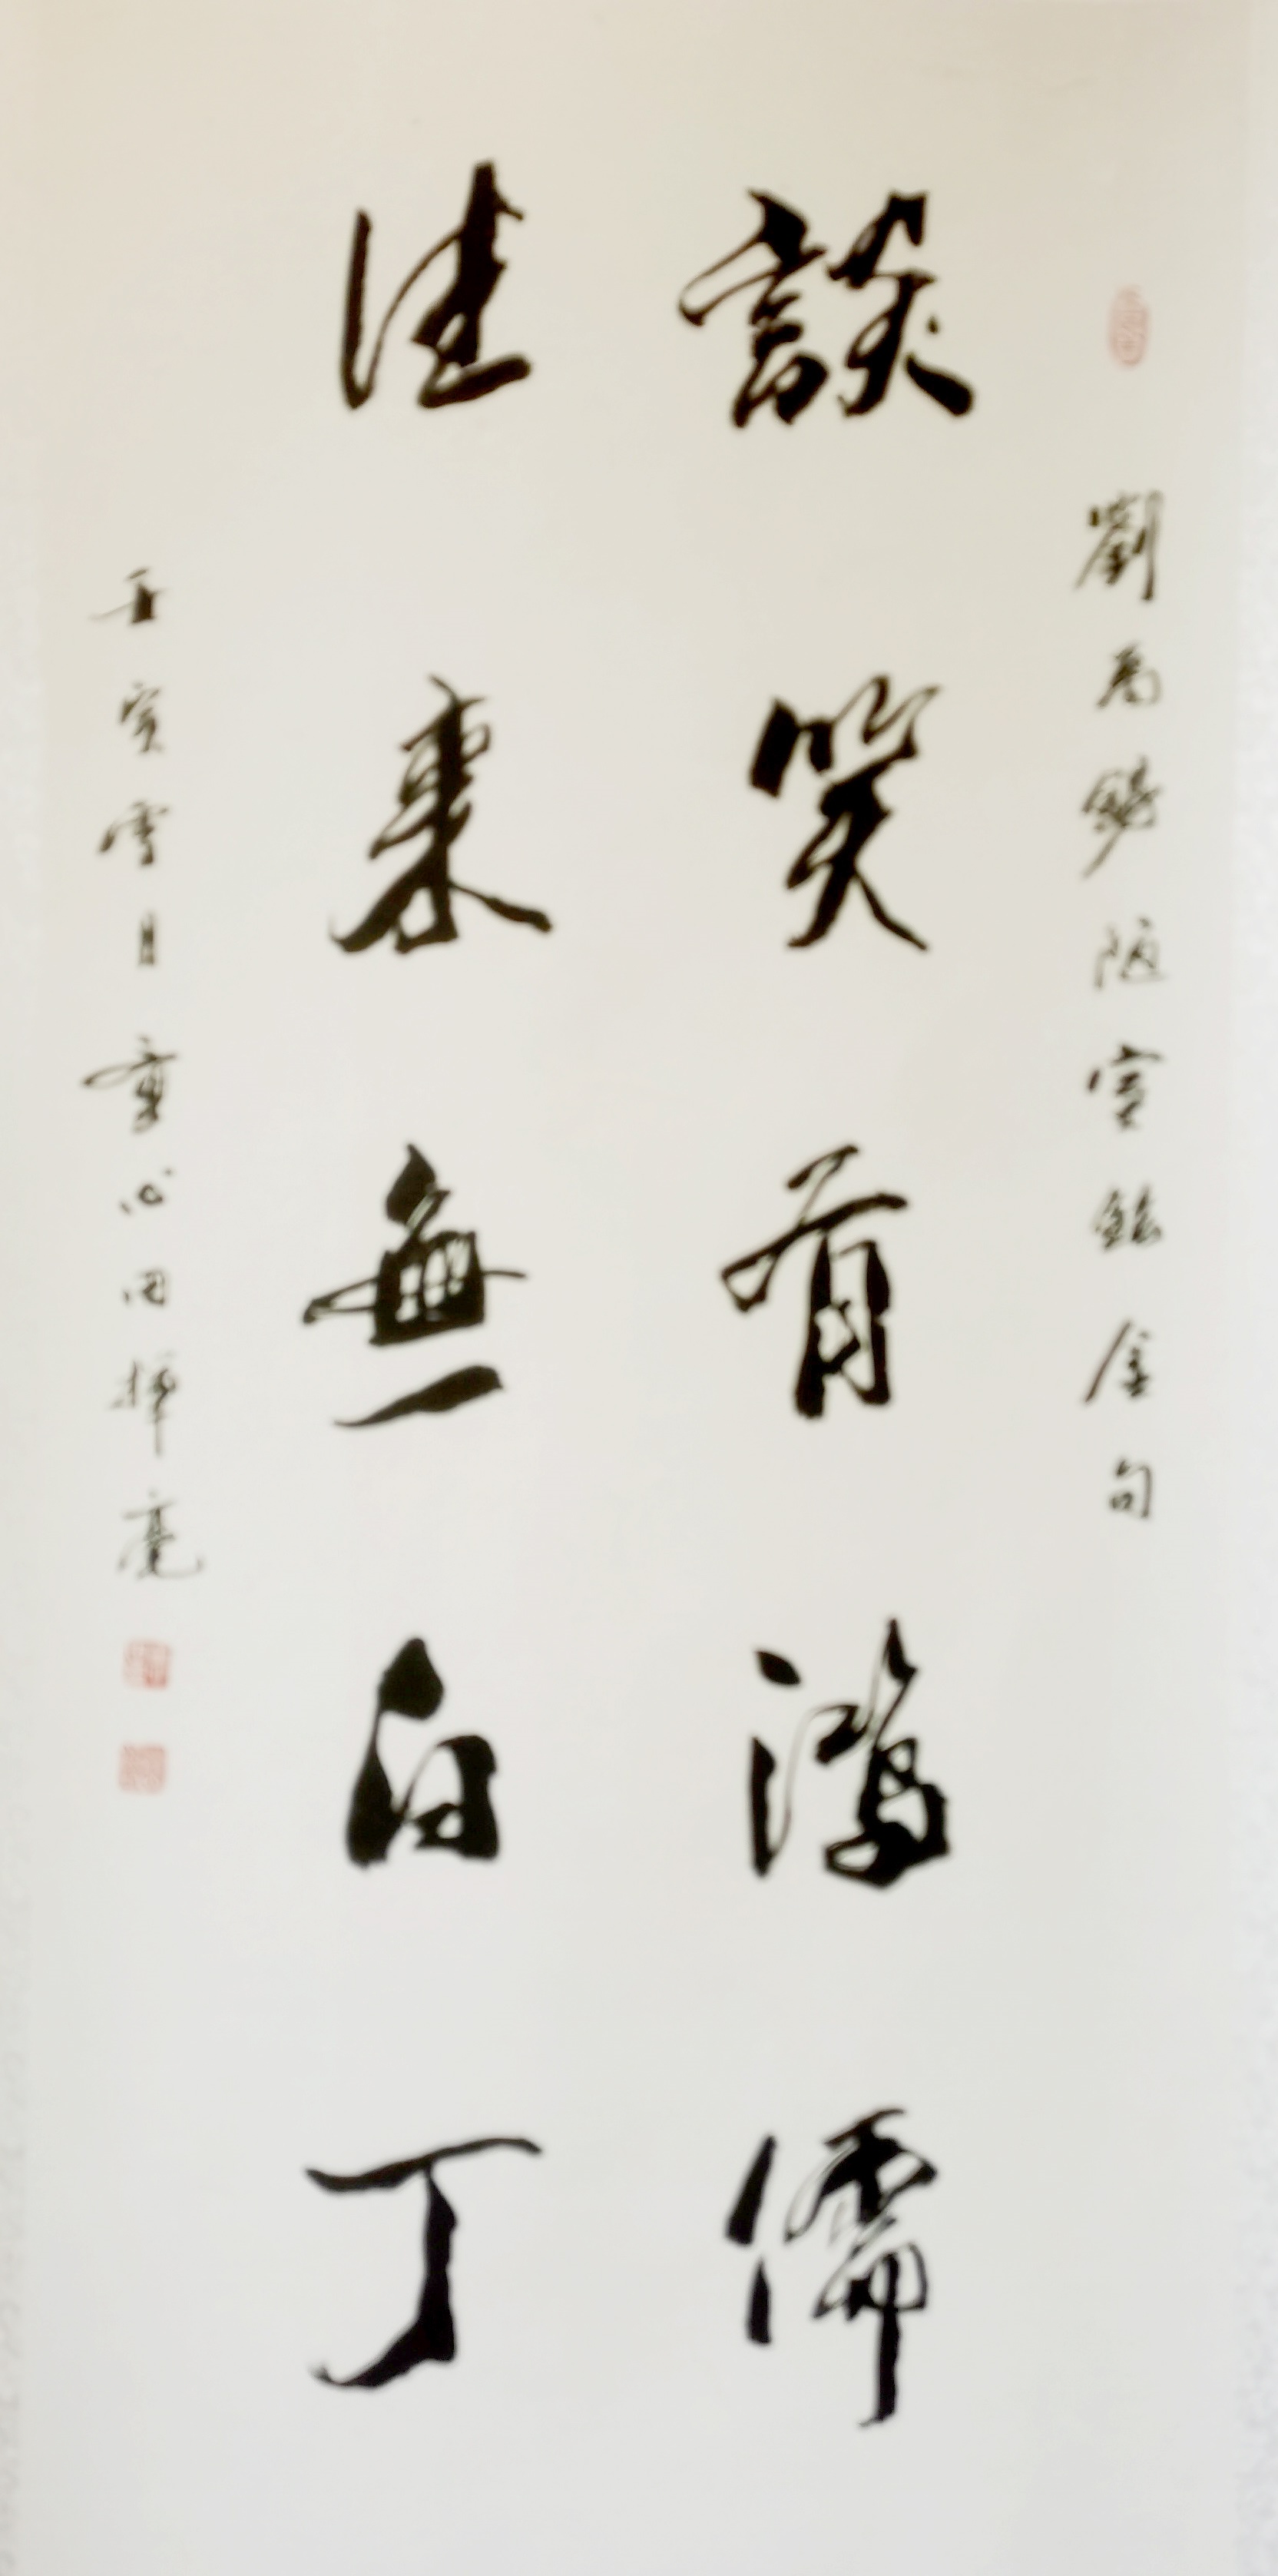 劉禹錫陋室銘金句
談笑有鴻儒
往來無白丁
壬寅雪月童心田揮毫